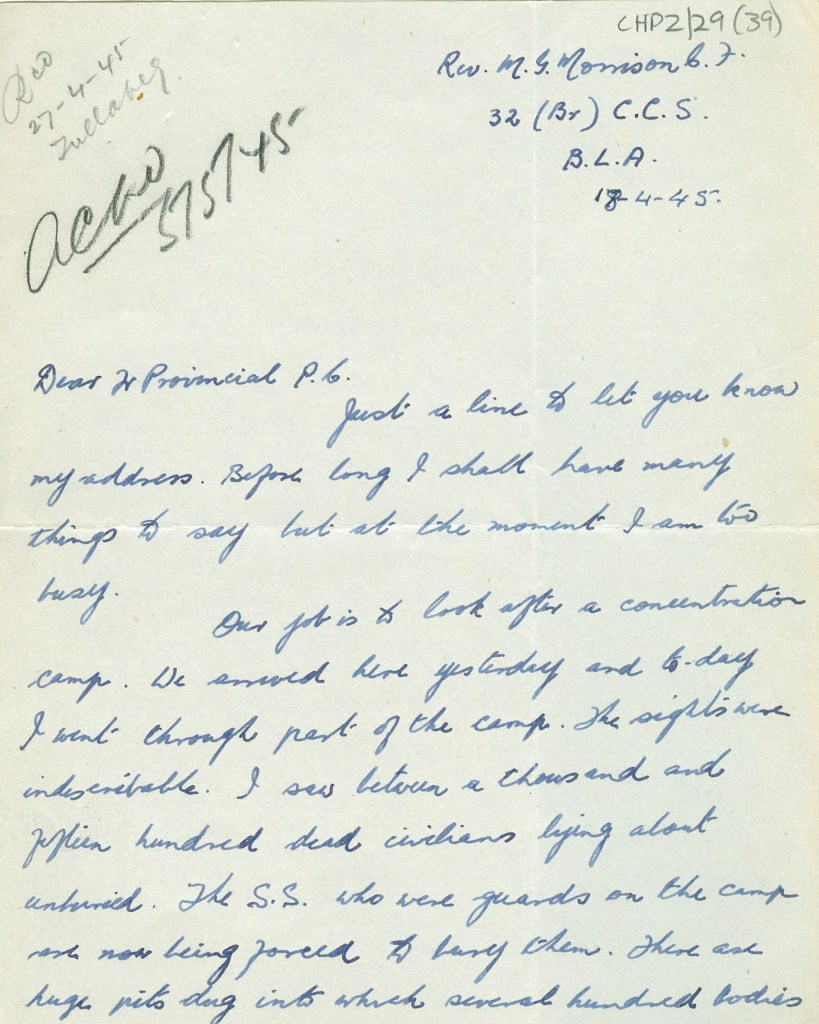 CHP2/29 (39)
Rcd
27-4-45
Tullabeg.
Ackd
3/5/45
Rev. M. G. Morrison C. F.
32 (Br) C. C. S.
B. L. A.
18-4-45.
Dear Fr Provincial P. C.
Just a line to let you know
my address. Before long I shall have many
things to say but at the moment I am too
busy.
Our job is to look after a concentration
camp. We arrived here yesterday and to-day
I went through part of the camp. The sights were
indescribable. I saw between a thousand and
fifteen hundred dead civilians lying about
unburied. The S.S. who were guards on the camp
are now being forced to bury them. There are
huge pits dug into which several hundred bodies